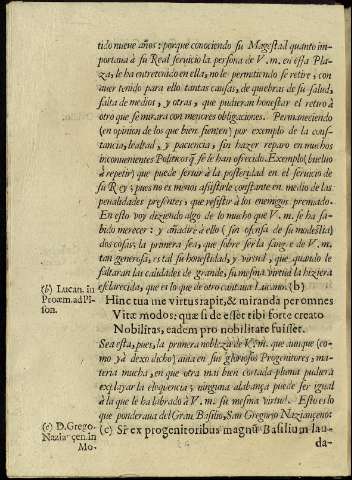 tido nueve años: porque conociendo su Magestad quanto im-
portaua à su Real seruicio la persona de V. m. en essa Pla-
za, le ha entretenido en ella, no le permitiendo se retire; con
auer tenido para ello tantas causas, de quebras de su salud,
falta de medios, y otras, que pudieran honestar el retiro à
otro que se mirara con menores obligaciones. Permaneciendo
(en opinion de los que bien sienten) por exemplo de la cons-
tancia, lealtad, y paciencia, sin hazer reparo en muchos
inconuenientes Politicos q̃ se le han ofrecido. Exemplo (bueluo
à repetir) que puede seruir à la posteridad en el seruicio de
su Rey; pues no es menos assistirle constante en medio de las
penalidades presentes, que resistir à los enemigos premiado.
En esto voy diziendo algo de lo mucho que V. m. se ha sa-
bido merecer: y añadirè à ello (sin ofensa de su modestia)
dos cosas; la primera sea, que sobre ser la sangre de V. m.
tan generosa, es tal su honestidad, y virtud, que quando le
faltaran las calidades de grande, su mesma virtud la hiziera
esclarecida, que es lo que de otro cantaua Lucano. (b)
(b) Lucan. in
Proæm. ad Pi-
son.
Hinc tua me virtus rapit, & miranda per omnes
Vitæ modos: quæ si de esset tibi forte creato
Nobilitas, eadem pro nobilitate fuisset.
Sea esta, pues, la primera nobleza de V. m. que aunque (co-
mo yà dexo dicho) auia en sus gloriosos Progenitores, ma-
teria mucha, en que otra mas bien cortada pluma pudiera
explayar la eloquencia; ninguna alabança puede ser igual
à la que le ha labrado à V. m. su mesma virtud. Esto es lo
que ponderaua del Gran Basilio, San Gregorio Naziançeno:
(c) D. Grego.
Naziançen. in
Mo-
(c) Si ex progenitoribus magnũ Basilium lau-
da-